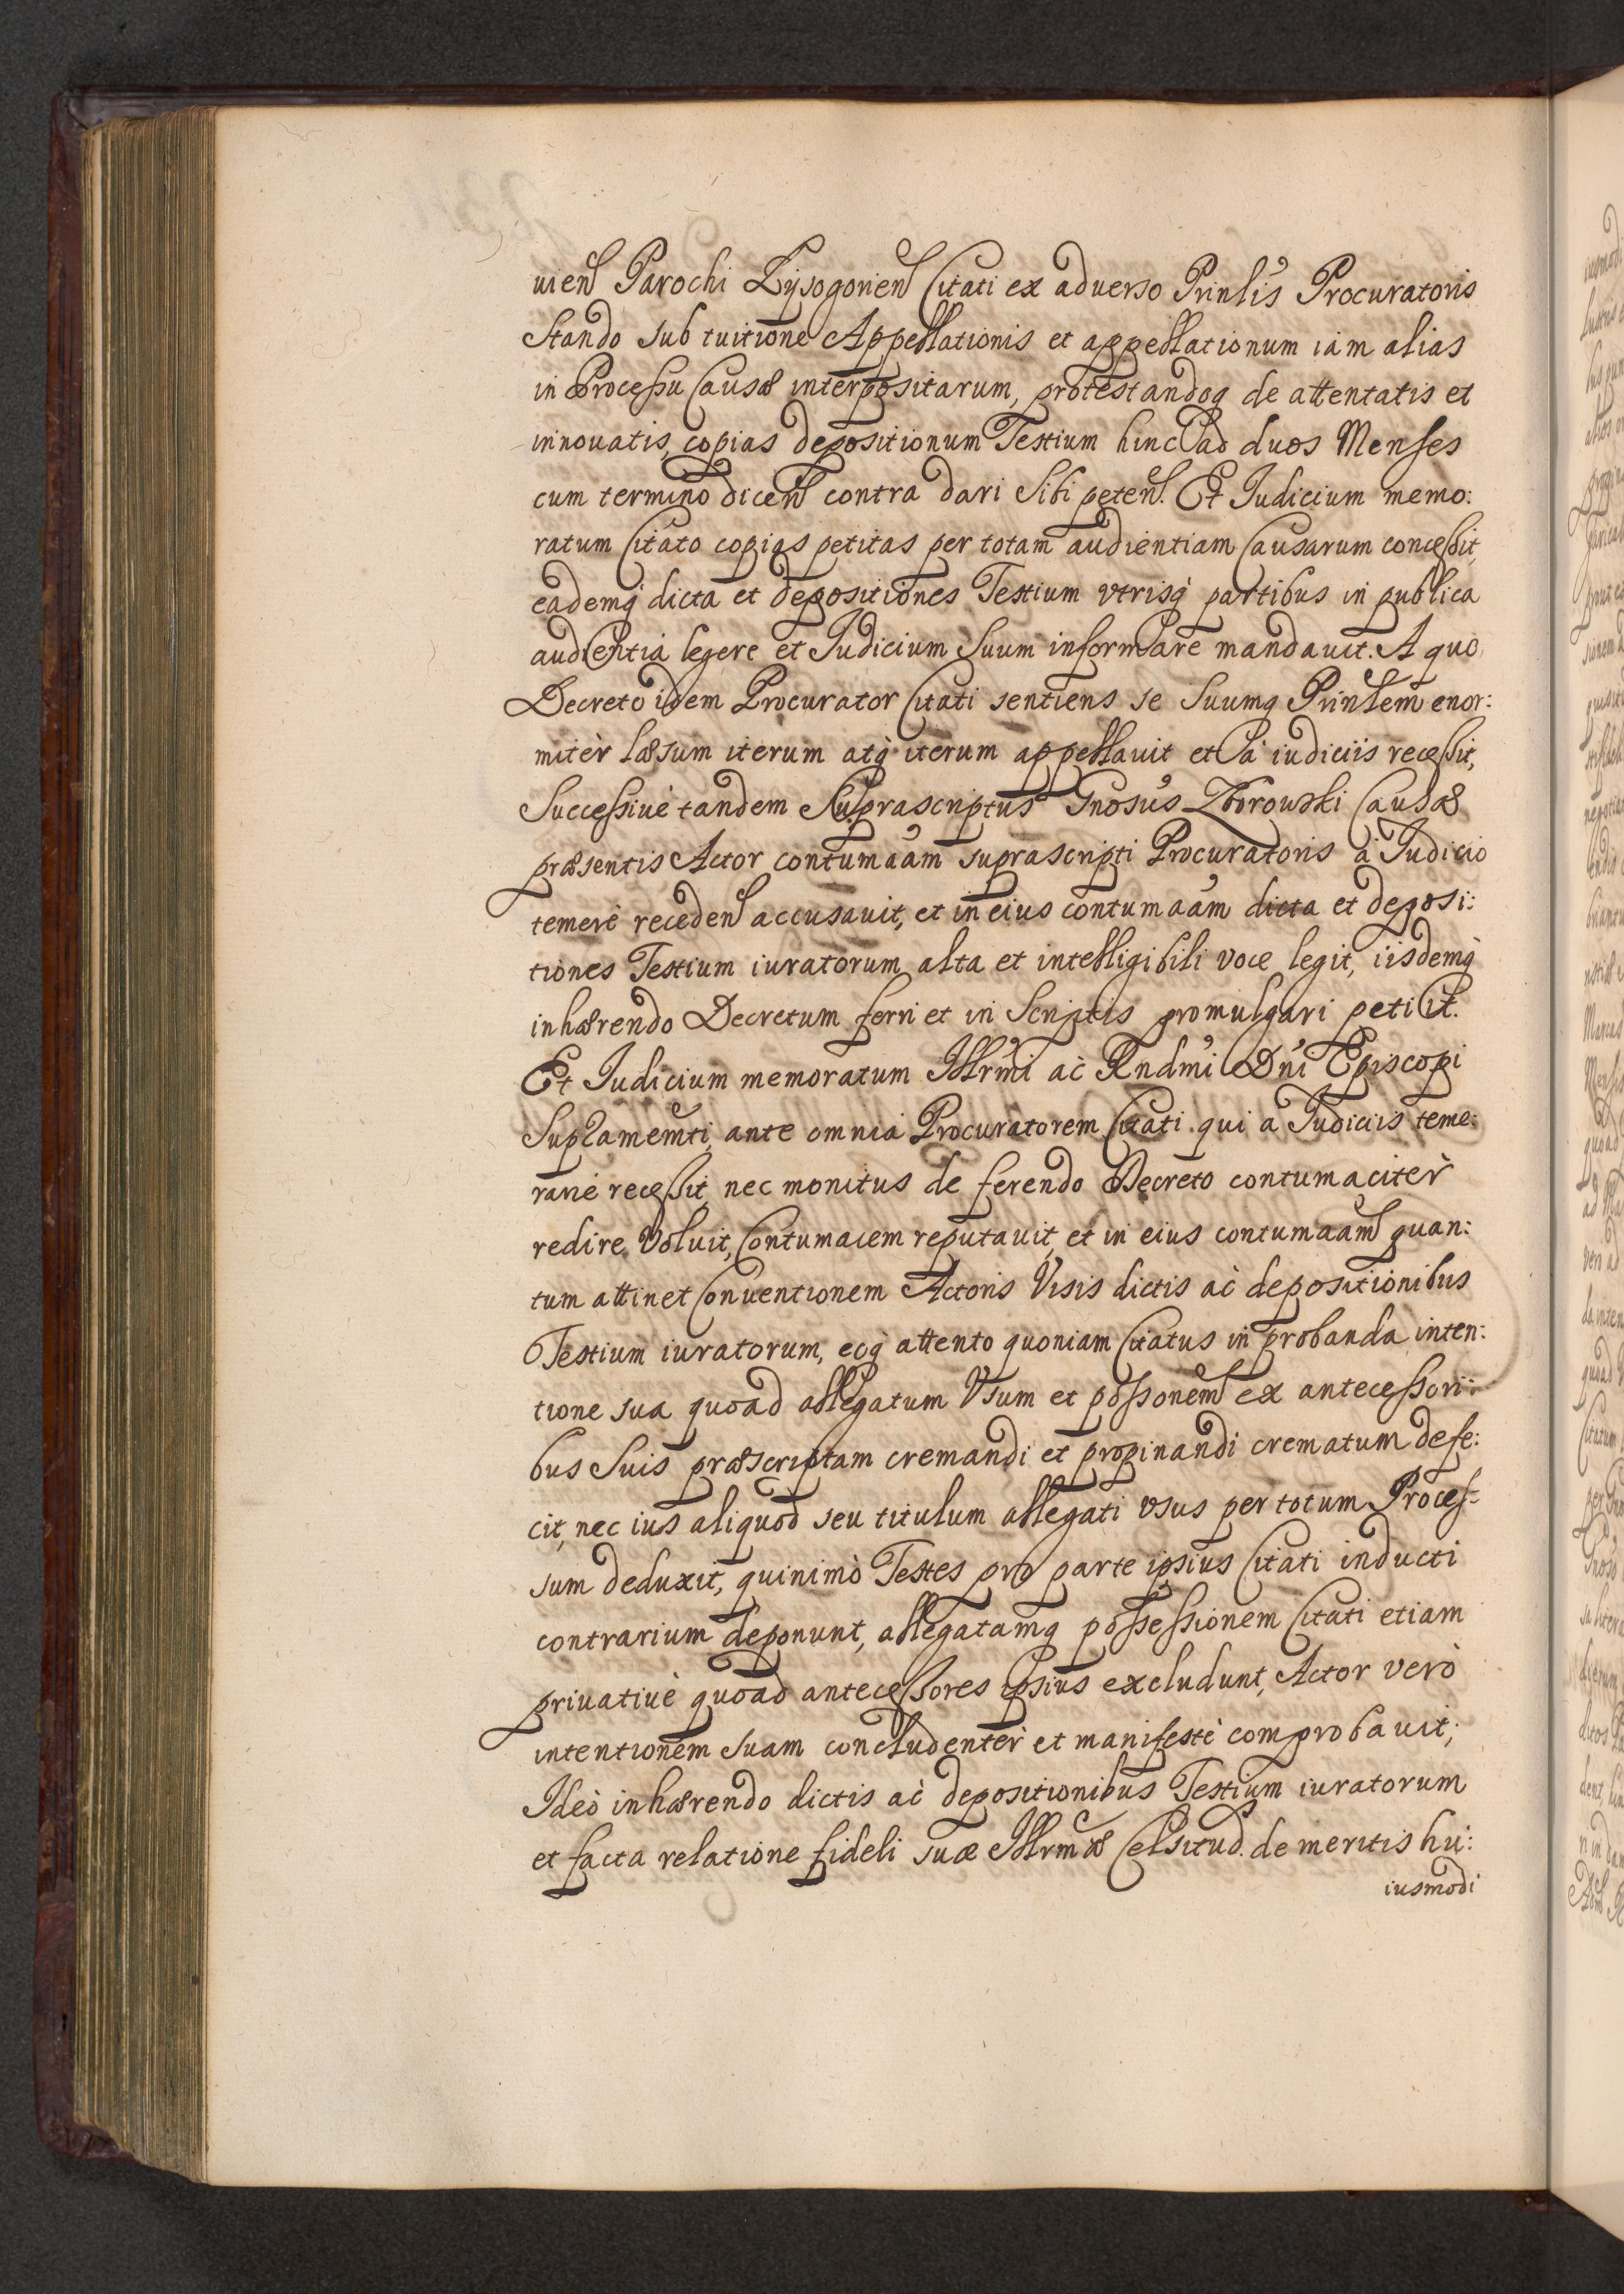 uien Parochi Lysogonien Citati ex aduerso Prinlis Procuratoris
Stando sub tuitione Appellationis et appellationum iam alias
in Processu Causæ interpositarum, protestandoq de attentatis et
innouatis, copias depositionum Testium hinc ad duos Menses
cum termino dicen contra dari Sibi peten. Et Iudicium memo:
ratum Citato copias petitas per totam audientiam Causarum concessit,
eademq dicta et depositiones Testium vtrisq partibus in publica
audientia legere et Iudicium Suum informare mandauit. A quo
Decreto idem Procurator Citati sentiens se Suumq Prinlem enor:
mitèr læsum iterum atq iterum appellauit et à iudiciis recessit,
Successiuè tandem Suprascriptus Gnosus Zborowski Causæ
præsentis Actor contumaam suprascripti Procuratoris à Iudicio
temerè receden accusauit, et in eius contumaam dicta et deposi:
tiones Testium iuratorum alta et intelligibili voce legit, iisdemq
inhærendo Decretum ferri et in Scriptis promulgari petiit.
Et Iudicium memoratum Illrmi ac Rndmi Dni Episcopi
Supramemti, ante omnia Procuratorem Citati qui à Iudiciis teme:
rariè recessit, nec monitus de ferendo Decreto contumacitèr
redire Voluit, Contumacem reputauit, et in eius contumaam quan:
tum attinet Conuentionem Actoris Visis dictis ac depositionibus
Testium iuratorum, eoq attento quoniam Citatus in probanda inten:
tione sua quoad allegatum Vsum et possonem ex antecessori:
bus Suis præscriptam cremandi et propinandi crematum defe:
cit, nec ius aliquod seu titulum allegati vsus per totum Proces:
sum deduxit, quinimò Testes pro parte ipsius Citati inducti
contrarium deponunt, allegatamq possessionem Citati etiam
priuatiuè quoad antecessores ipsius excludunt, Actor verò
intentionem suam concludentèr et manifestè comprobauit;
Ideò inhærendo dictis ac depositionibus Testium iuratorum
et facta relatione fideli suæ Illrmæ Celsitud. de meritis hu:
iusmodi